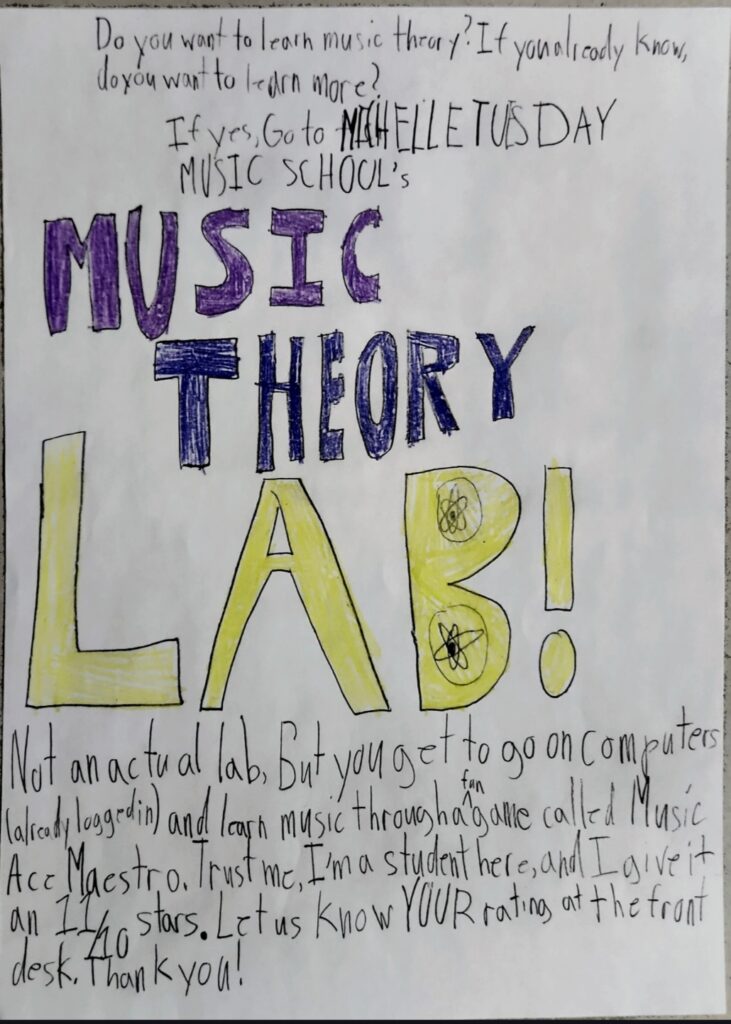 Do you want to learn music theory? If you already know,
do you want to learn more?
If yes, Go to MICHELLE TUESDAY
MUSIC SCHOOL's
MUSIC
THEORY
LAB!
Not an actual lab, But you get to go on computers
(already logged in) and learn music through a fun game called Music
Ace Maestro. Trust me, I'm a student here, and I give it
an 11/10 stars. Let us know YOUR rating at the front
desk. Thank you!